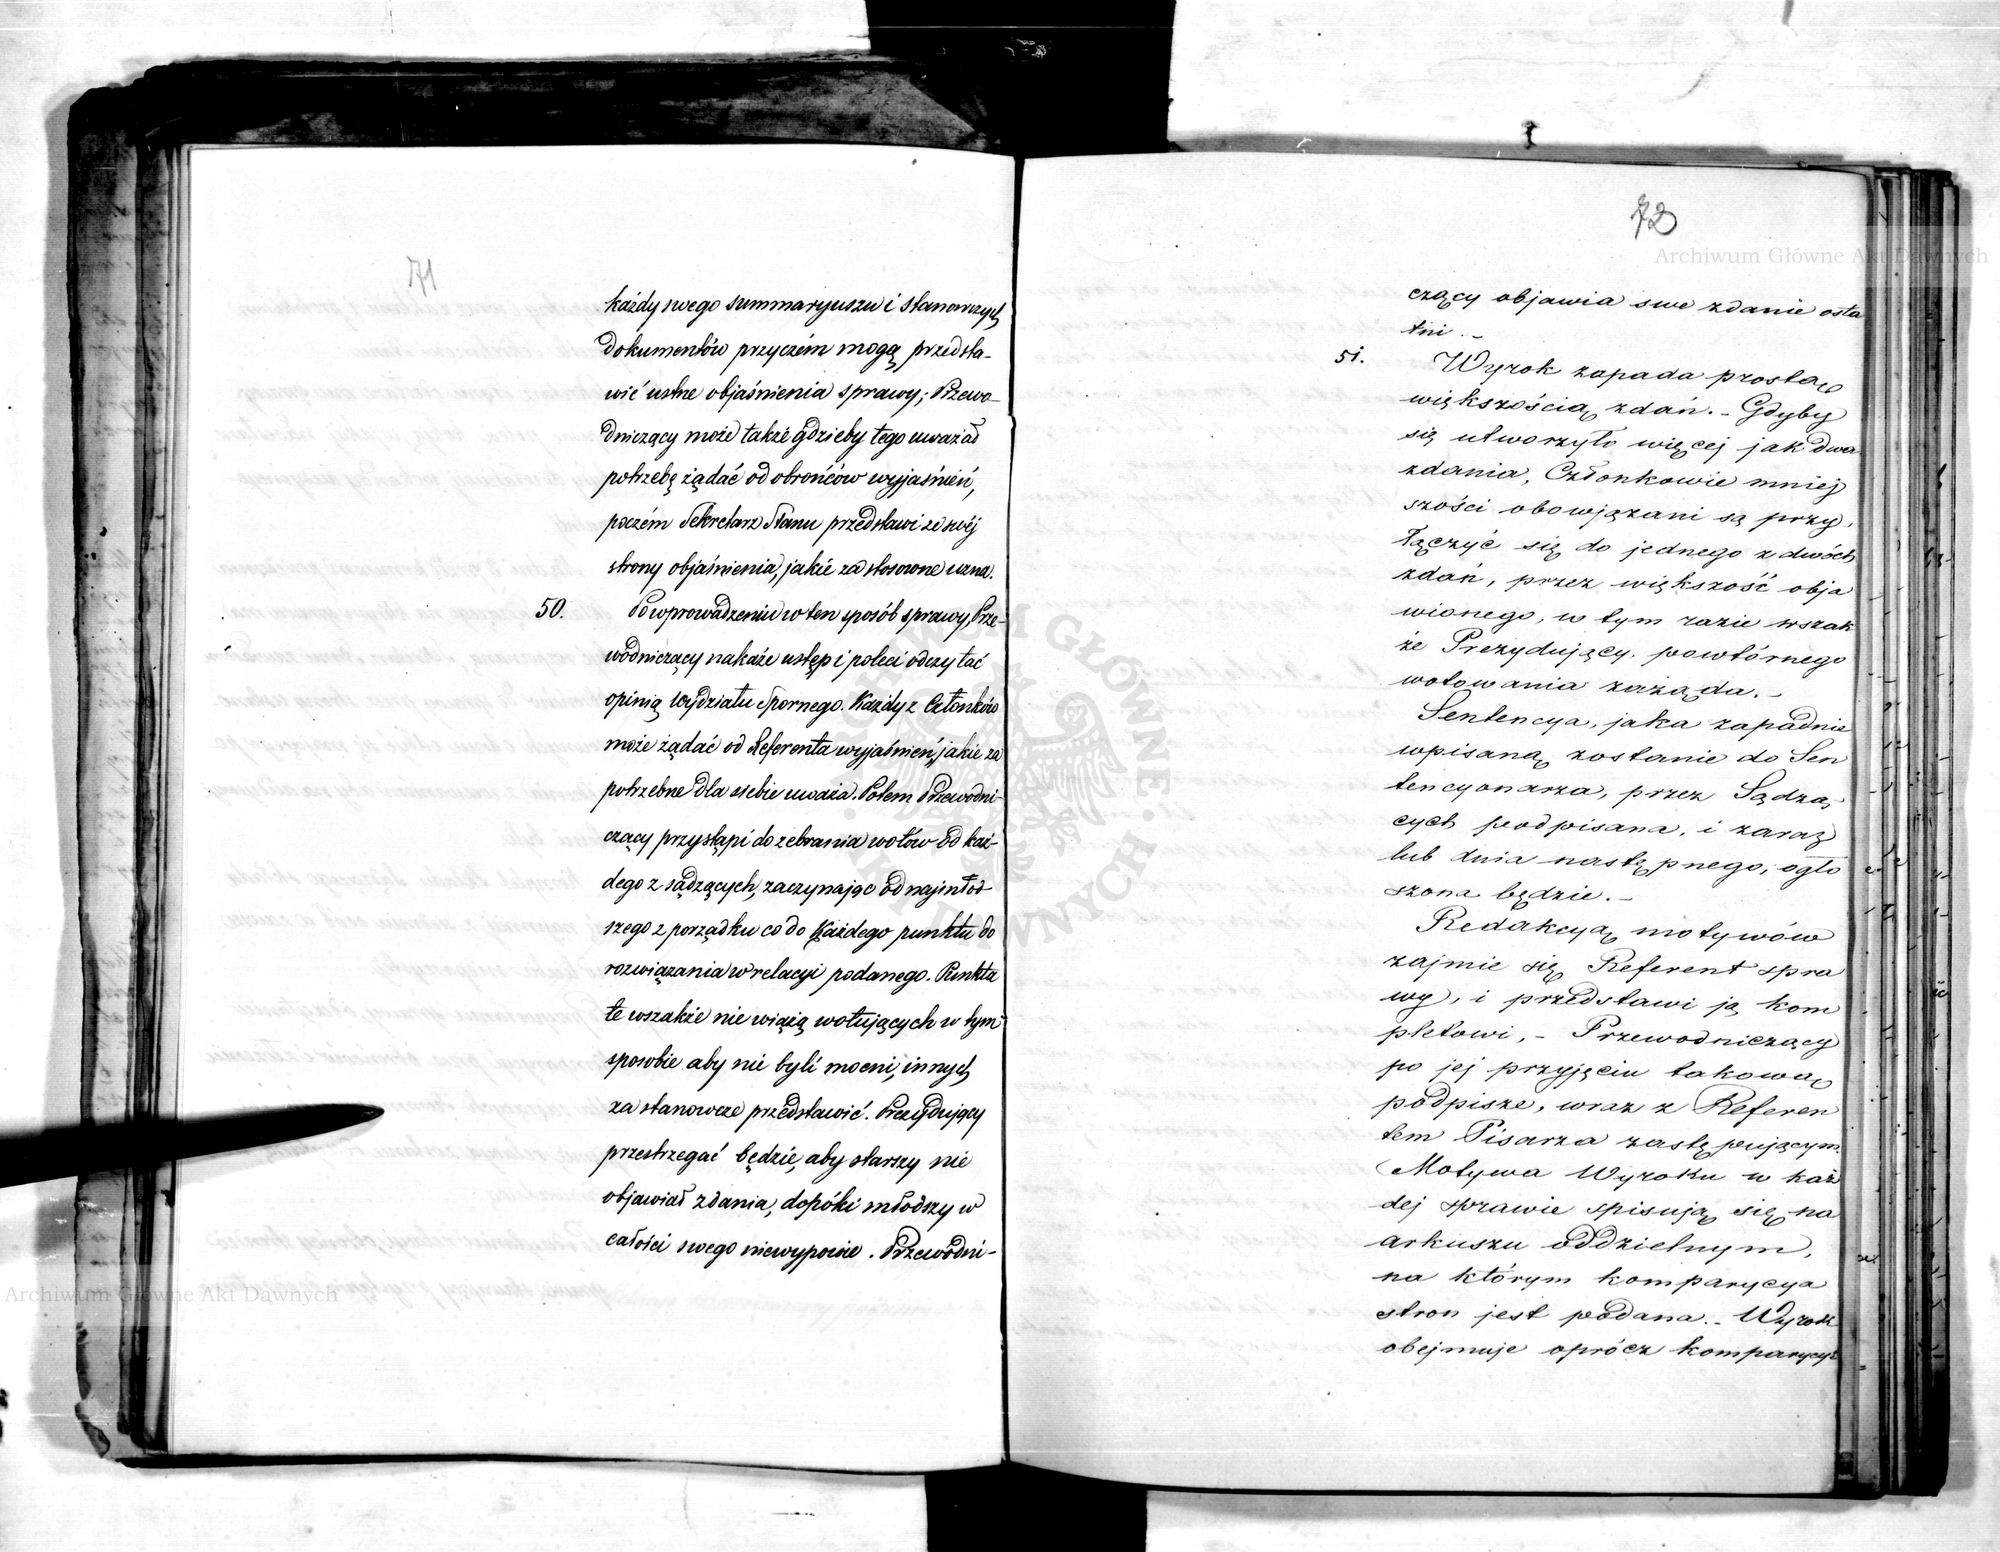 71
każdy swego summaryuszu i stanowczych
dokumentów przyczém mogą przedsta-
wić ustne objaśnienia sprawy; Przewo-
dniczący może także gdzieby tego uważał
potrzebę żądać od obrońców wyjaśnień,
poczém Sekretarz Stanu przedstawi ze swéj
strony objaśnienia, jakie za stosowne uzna.
50. Po wprowadzeniu w ten sposób sprawy, Prze-
wodniczący nakaże ustęp i poleci odczytać
opinią Wydziału Spornego. Każdy z Członków
może żądać od Referenta wyjaśnień, jakie za
potrzebne dla siebie uważa. Potem Przewodni-
czący przystąpi do zebrania wotów od każ-
dego z sądzących, zaczynając od najmłod-
szego z porządku co do każdego punktu do
rozwiązania w relacyi podanego. Punkta
te wszakże nie wiążą wotujących w tym
sposobie aby nie byli mocni, innych
za stanowcze przedstawić. Prezydujący
przestrzegać będzie, aby starszy nie
objawiał zdania, dopóki młodszy w
całości swego niewypowie. Przewodni-
72
czący objawia swe zdanie osta
tni.-
51. Wyrok zapada prostą
większością zdań.- Gdyby
się utworzyło więcej jak dwa
zdania, Członkowie mniej
szości obowjązani są przy,
łączyć się do jednego z dwóch
zdań, przez większość obja
wionego, w tym razie wszak
że Prezydujący, powtórnego
wotowania zażąda.-
Sentencya, jaka zapadnie
wpisaną zostanie do Sen
tencyonarza, przez Sądzą,
cych podpisana, i zaraz
lub dnia następnego, ogło
szona będzie.-
Redakcyą motywów
zajmie się Referent spra
wy, i przedstawi ją kom
pletowi,- Przewodniczący
po jej przyjęciu takową
podpisze, wraz z Referen
tem Pisarza zastępującym.
Motywa Wyroku w każ
dej sprawie spisują się na
arkuszu oddzielnym,
na którym komparycya
stron jest podana.- Wyrok
obejmuje oprócz komparycyi
Archiwum Główne Akt Dawnych
Archiwum Główne Akt Dawnych
ARCHIWUM GŁÓWNE AKT DAWNYCH